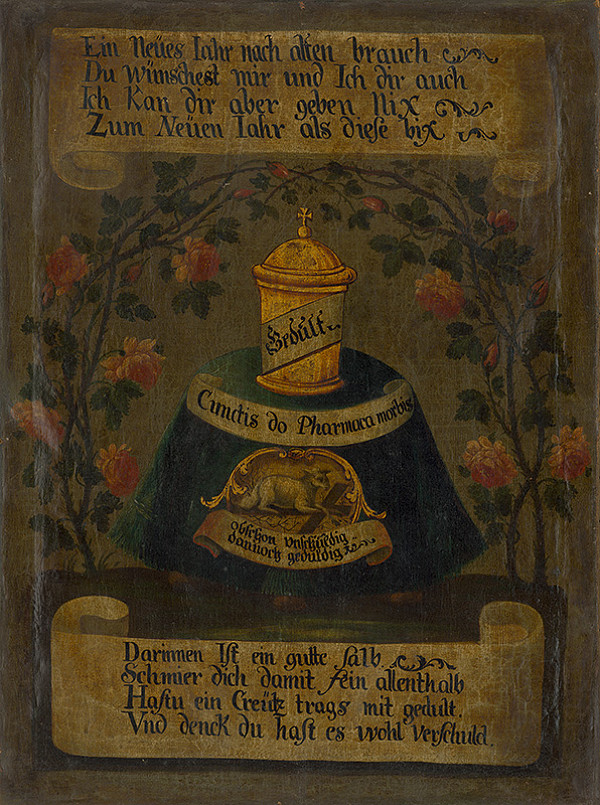 Ein Neües Iahr nach alten brauch
Du Wünschest mir und Ich dir auch
Ich Kan dir aber geben Nix
Zum Neüen Iahr als diese bix
Gedult
Cunctis do Pharmaca morbis
obschon vnschuldig
dannoch geduldig
Darinnen Ist ein gutte salb
Schmier dich damit fein allenthalb
Hastu ein Creütz trags mit gedult,
Vnd denck du hast es wohl verschuld.